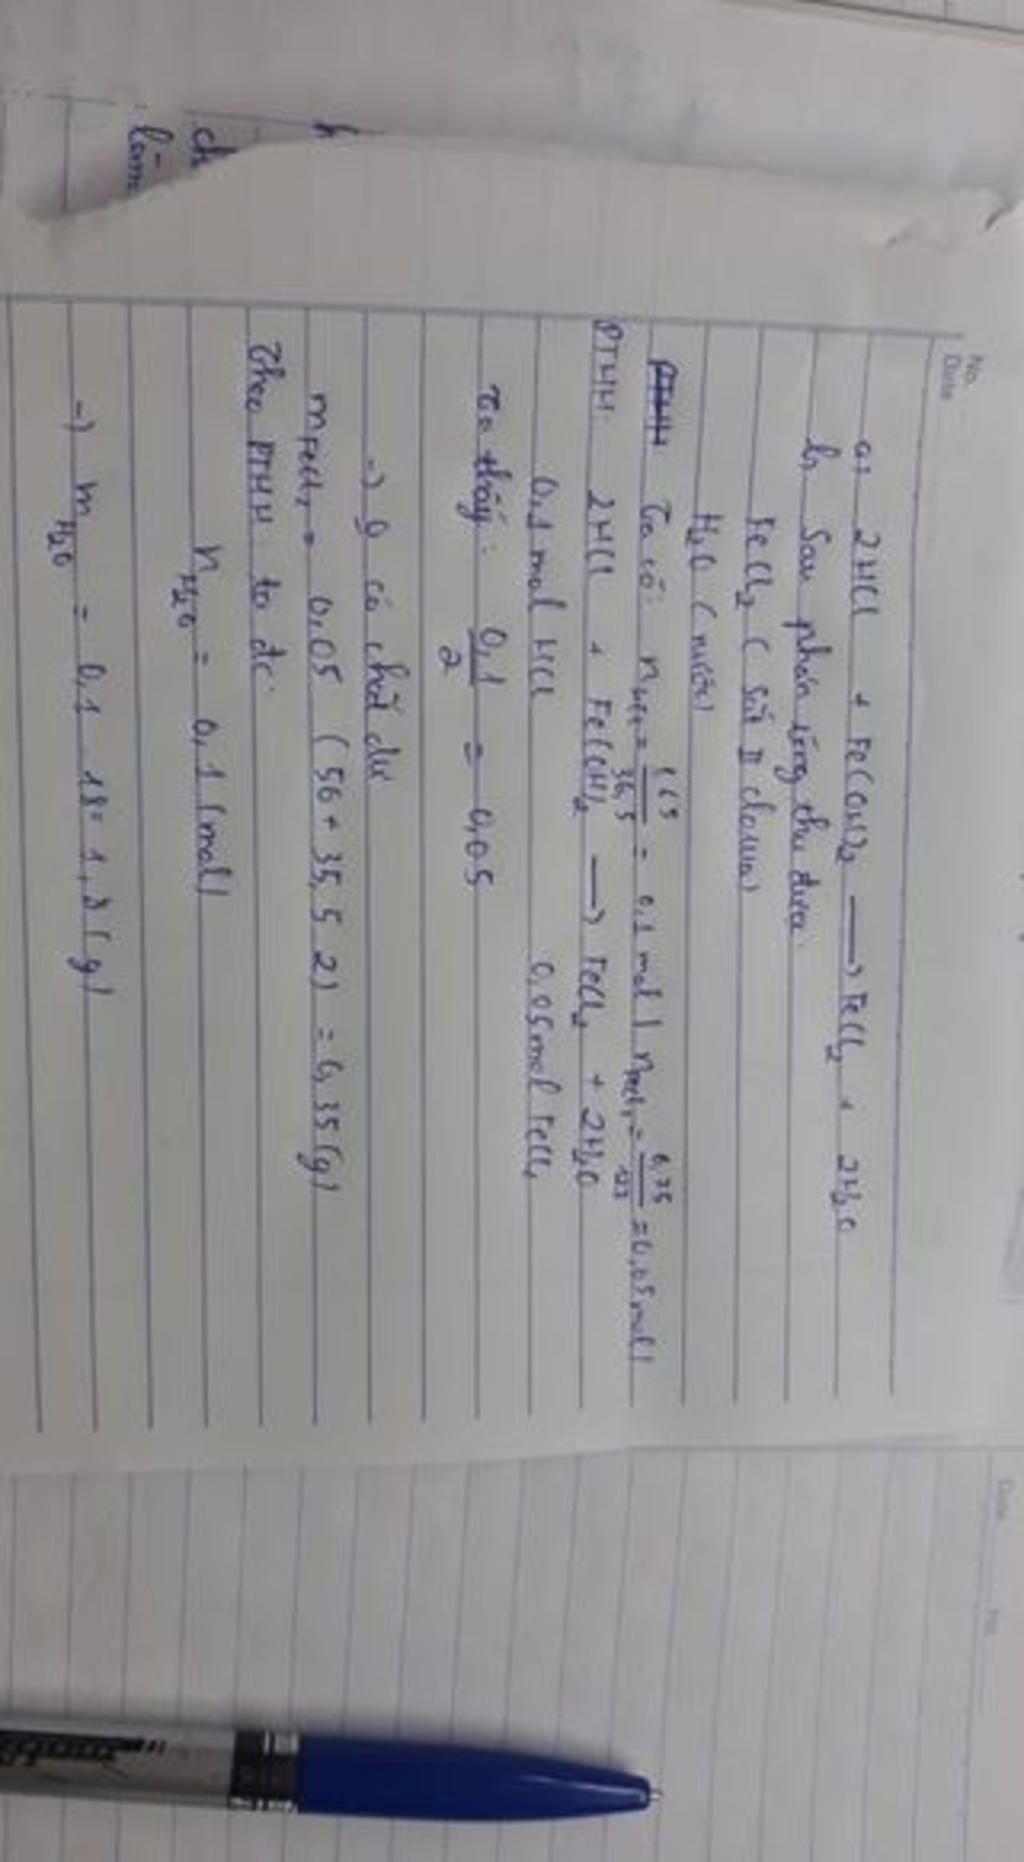 No.
Date
a, 2HCl + Fe(OH)₂ ⟶ FeCl₂ + 2H₂O
b, Sau phản ứng thu được
FeCl₂ ( sắt II clorua)
H₂O ( nước)
Ta có: n = /36,5 = 0,1 mol | n = = 0,05 mol |
PTHH: 2HCl + Fe(OH)₂ ⟶ FeCl₂ + 2H₂O
0,1 mol HCl 0,05 mol FeCl₂
Ta thấy: 0,1/2 = 0,05
→ có chất dư
mFeCl₂ = 0,05 ( 56 + 35,5 2) = 6,35(g)
Theo PTHH ta dc:
nH₂O = 0,1 (mol)
→ mH₂O = 0,1 . 18 = 1,8 (g)